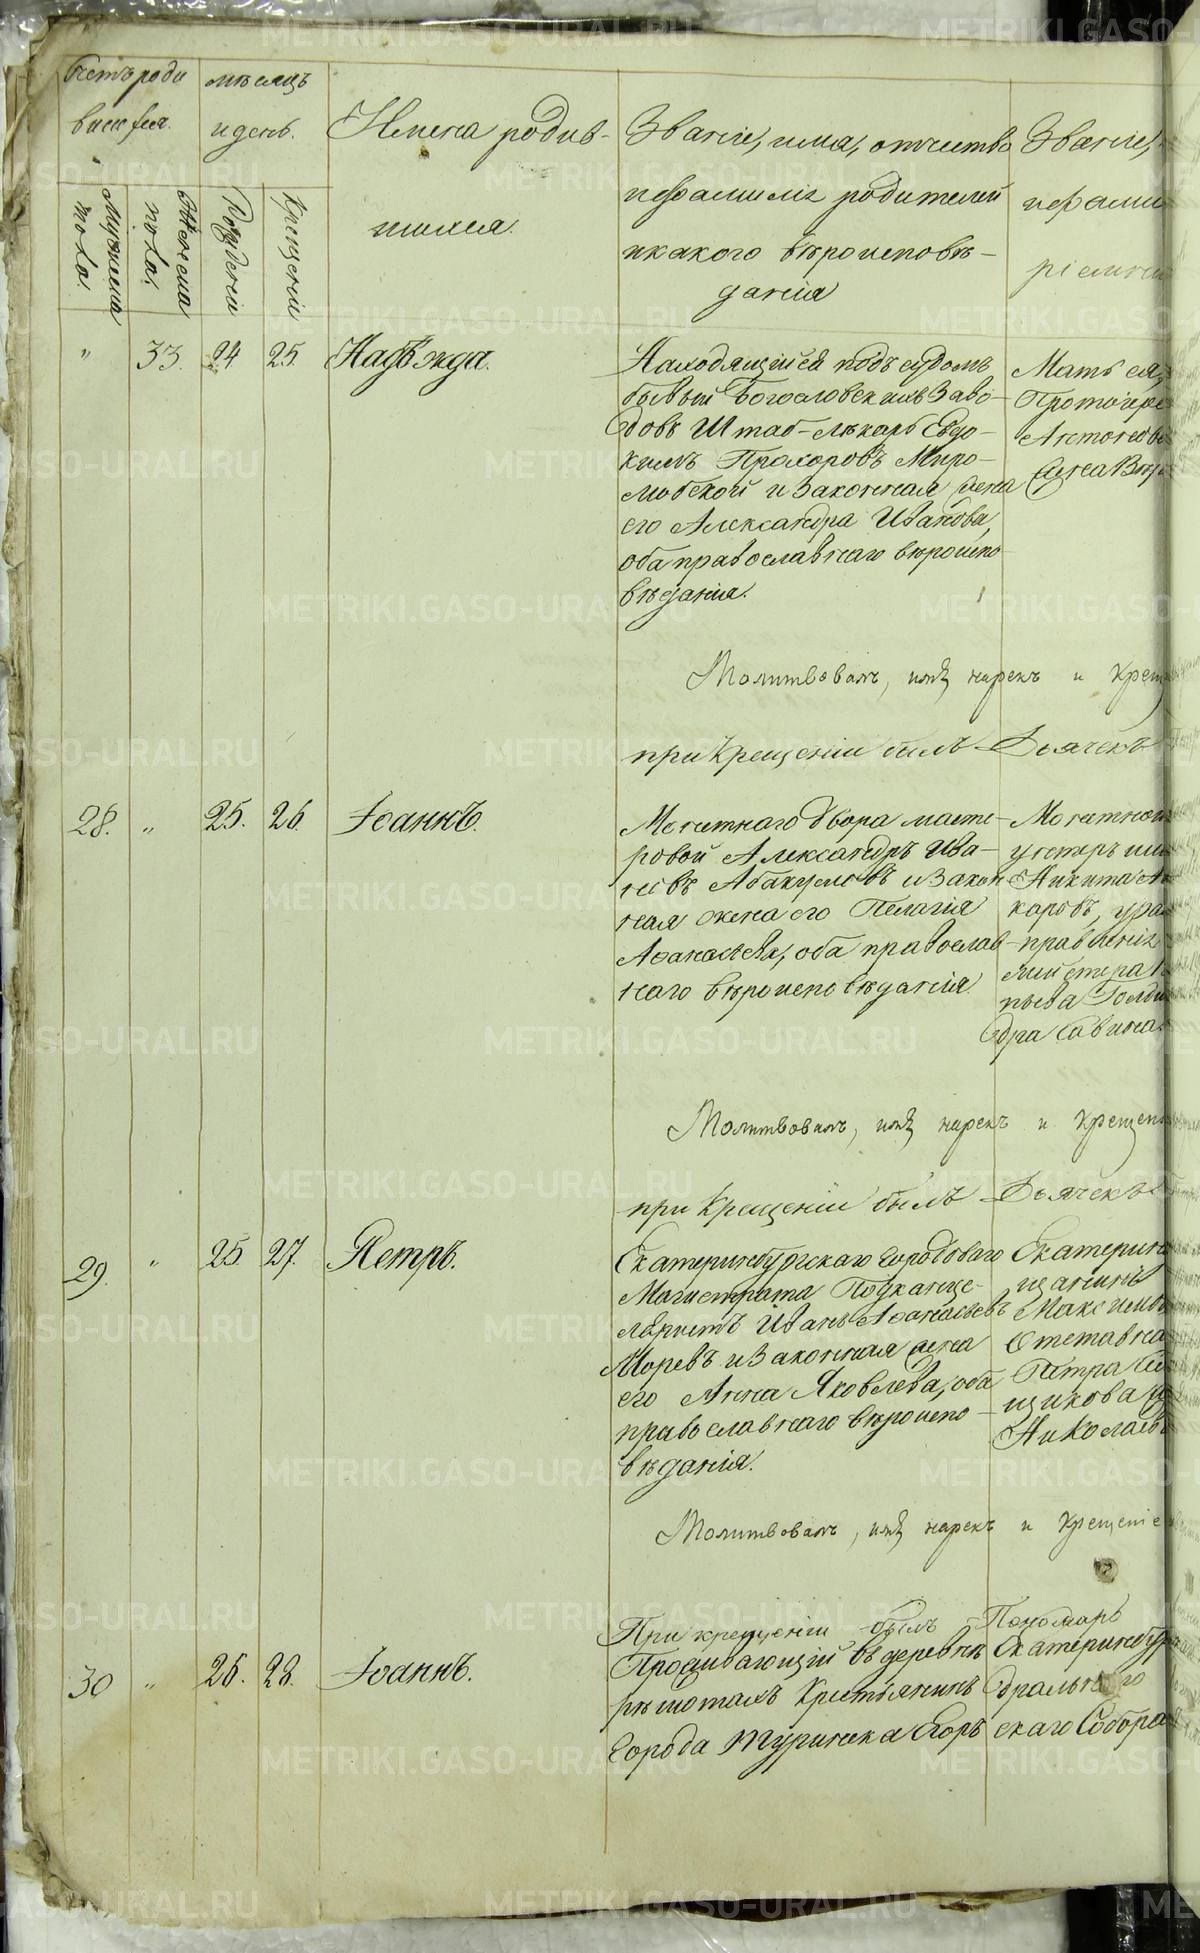 Счетъ роди
вшихся.
мѣсяцъ
и день.
Имена родив-
шихся.
Званіе, имя, отчество
и фамилія родителей
и какого вѣроисповѣ-
данія
Званіе,
и фами
ріемни
Мужеска
пола.
Женска
пола.
Рожденія
Крещенія
" 33. 24 25. Надѣжда.
Находящійся подъ судомъ
бывый Богословскихъ Заво-
довъ Штаб-лѣкарь Евдо-
кимъ Прохоровъ Миро-
любской и законная жена
его Александра Иванова,
оба православнаго вѣроиспо-
вѣданія.
Мать ея,
Протоіере
Антонов
Молитвовалъ, имя нарекъ и Крещ
при Крещеніи былъ Дьячекъ
28. " 25. 26. Іоаннъ.
Монетнаго двора масте-
ровой Александръ Ива-
новъ Абакумовъ и закон
ная жена его Пелагія
Аѳанасьева, оба православ-
наго вѣроисповѣданія.
Монетнаго
унтеръ ши
Никита
каровъ,
правленія
Савина
Молитвовалъ, имя нарекъ и Крещен
при Крещеніи былъ Дьячекъ
29. " 25. 27. Петръ.
Екатеринбургскаго городоваго
Магистрата Подканце-
ляристъ Иванъ Аѳанасьевъ
Моревъ и законная жена
его Анна Яковлева, оба
православнаго вѣроиспо-
вѣданія.
Екатеринб
щанинъ
Максимо
Отставна
Петра
щикова
Николаев
Молитвовалъ, имя нарекъ и Крещеніе
При крещеніи былъ Пономарь
30 " 26. 28. Іоаннъ.
Проживающій въ деревнѣ
рѣшотахъ Крестьянинъ
города Туринска Егоръ
Екатеринбур
дральнаго
скаго Собора
METRIKI.GASO-URAL.RU